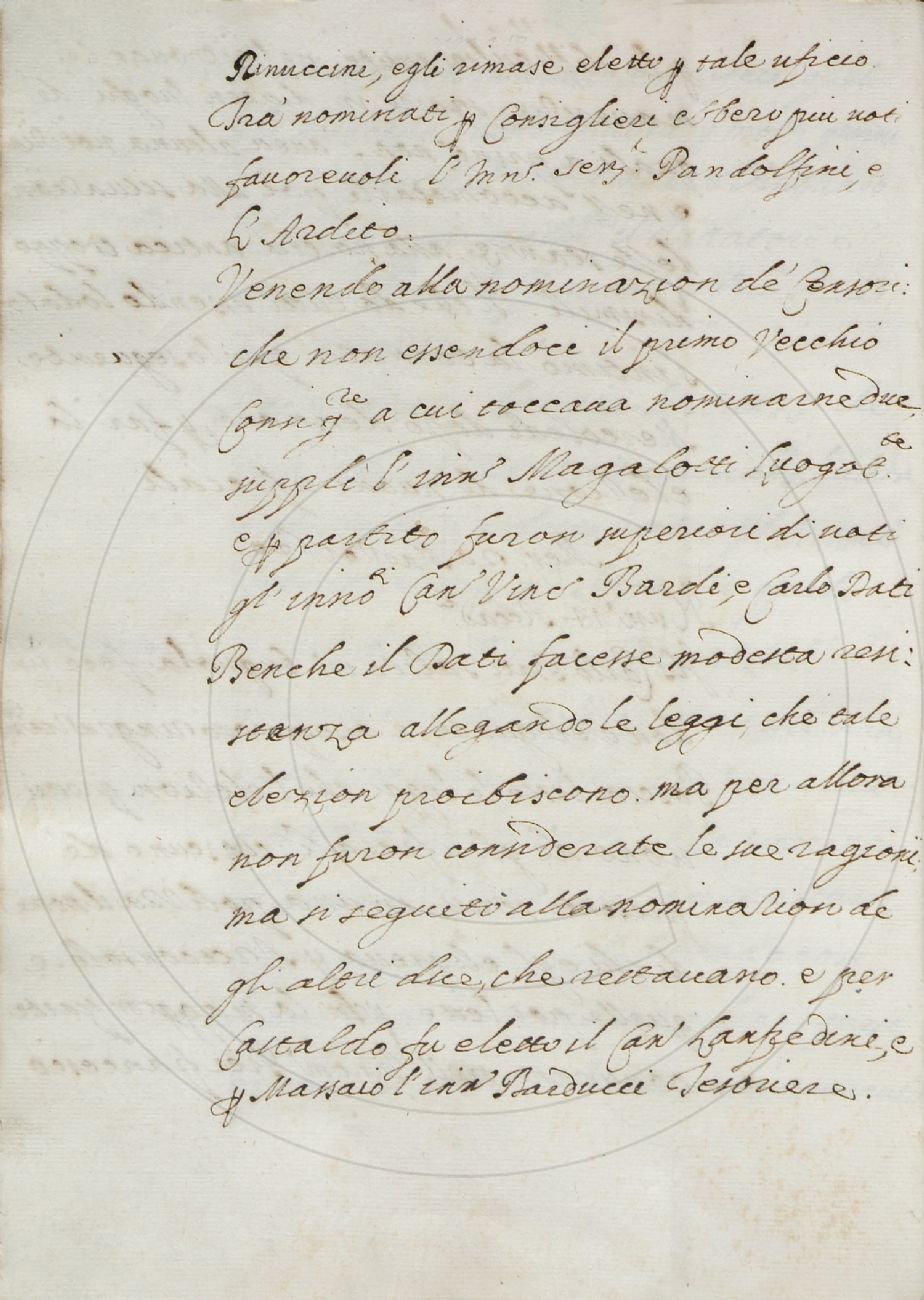 Rinuccini, egli rimase eletto ꝑ tale uficio.
Tra' nominati ꝑ Consiglieri ebbero piu uoti
fauoreuoli l'Inn.º Sen.ʳ Pandolfini, e
l'Ardito.
Venendo alla nominazion de' Censori:
che non essendoci il primo Vecchio
Consigʳᵉ a cui toccaua nominarne due,
supplì l'innº Magalotti Luogotᵗᵉ.
e ꝑ partito furon superiori di uoti
gl'innoⁱ Canº Vincº Bardi, e Carlo Dati
Benche il Dati facesse modesta resi:
stenza allegando le leggi, che tale
elezion proibiscono. ma per allora
non furon considerate le sue ragioni,
ma si seguitò alla nominazion de
gli altri due, che restauano. e per
Castaldo fu eletto il Canº Lanfredini, e
ꝑ Massaio l'innº Barducci Tesoriere.